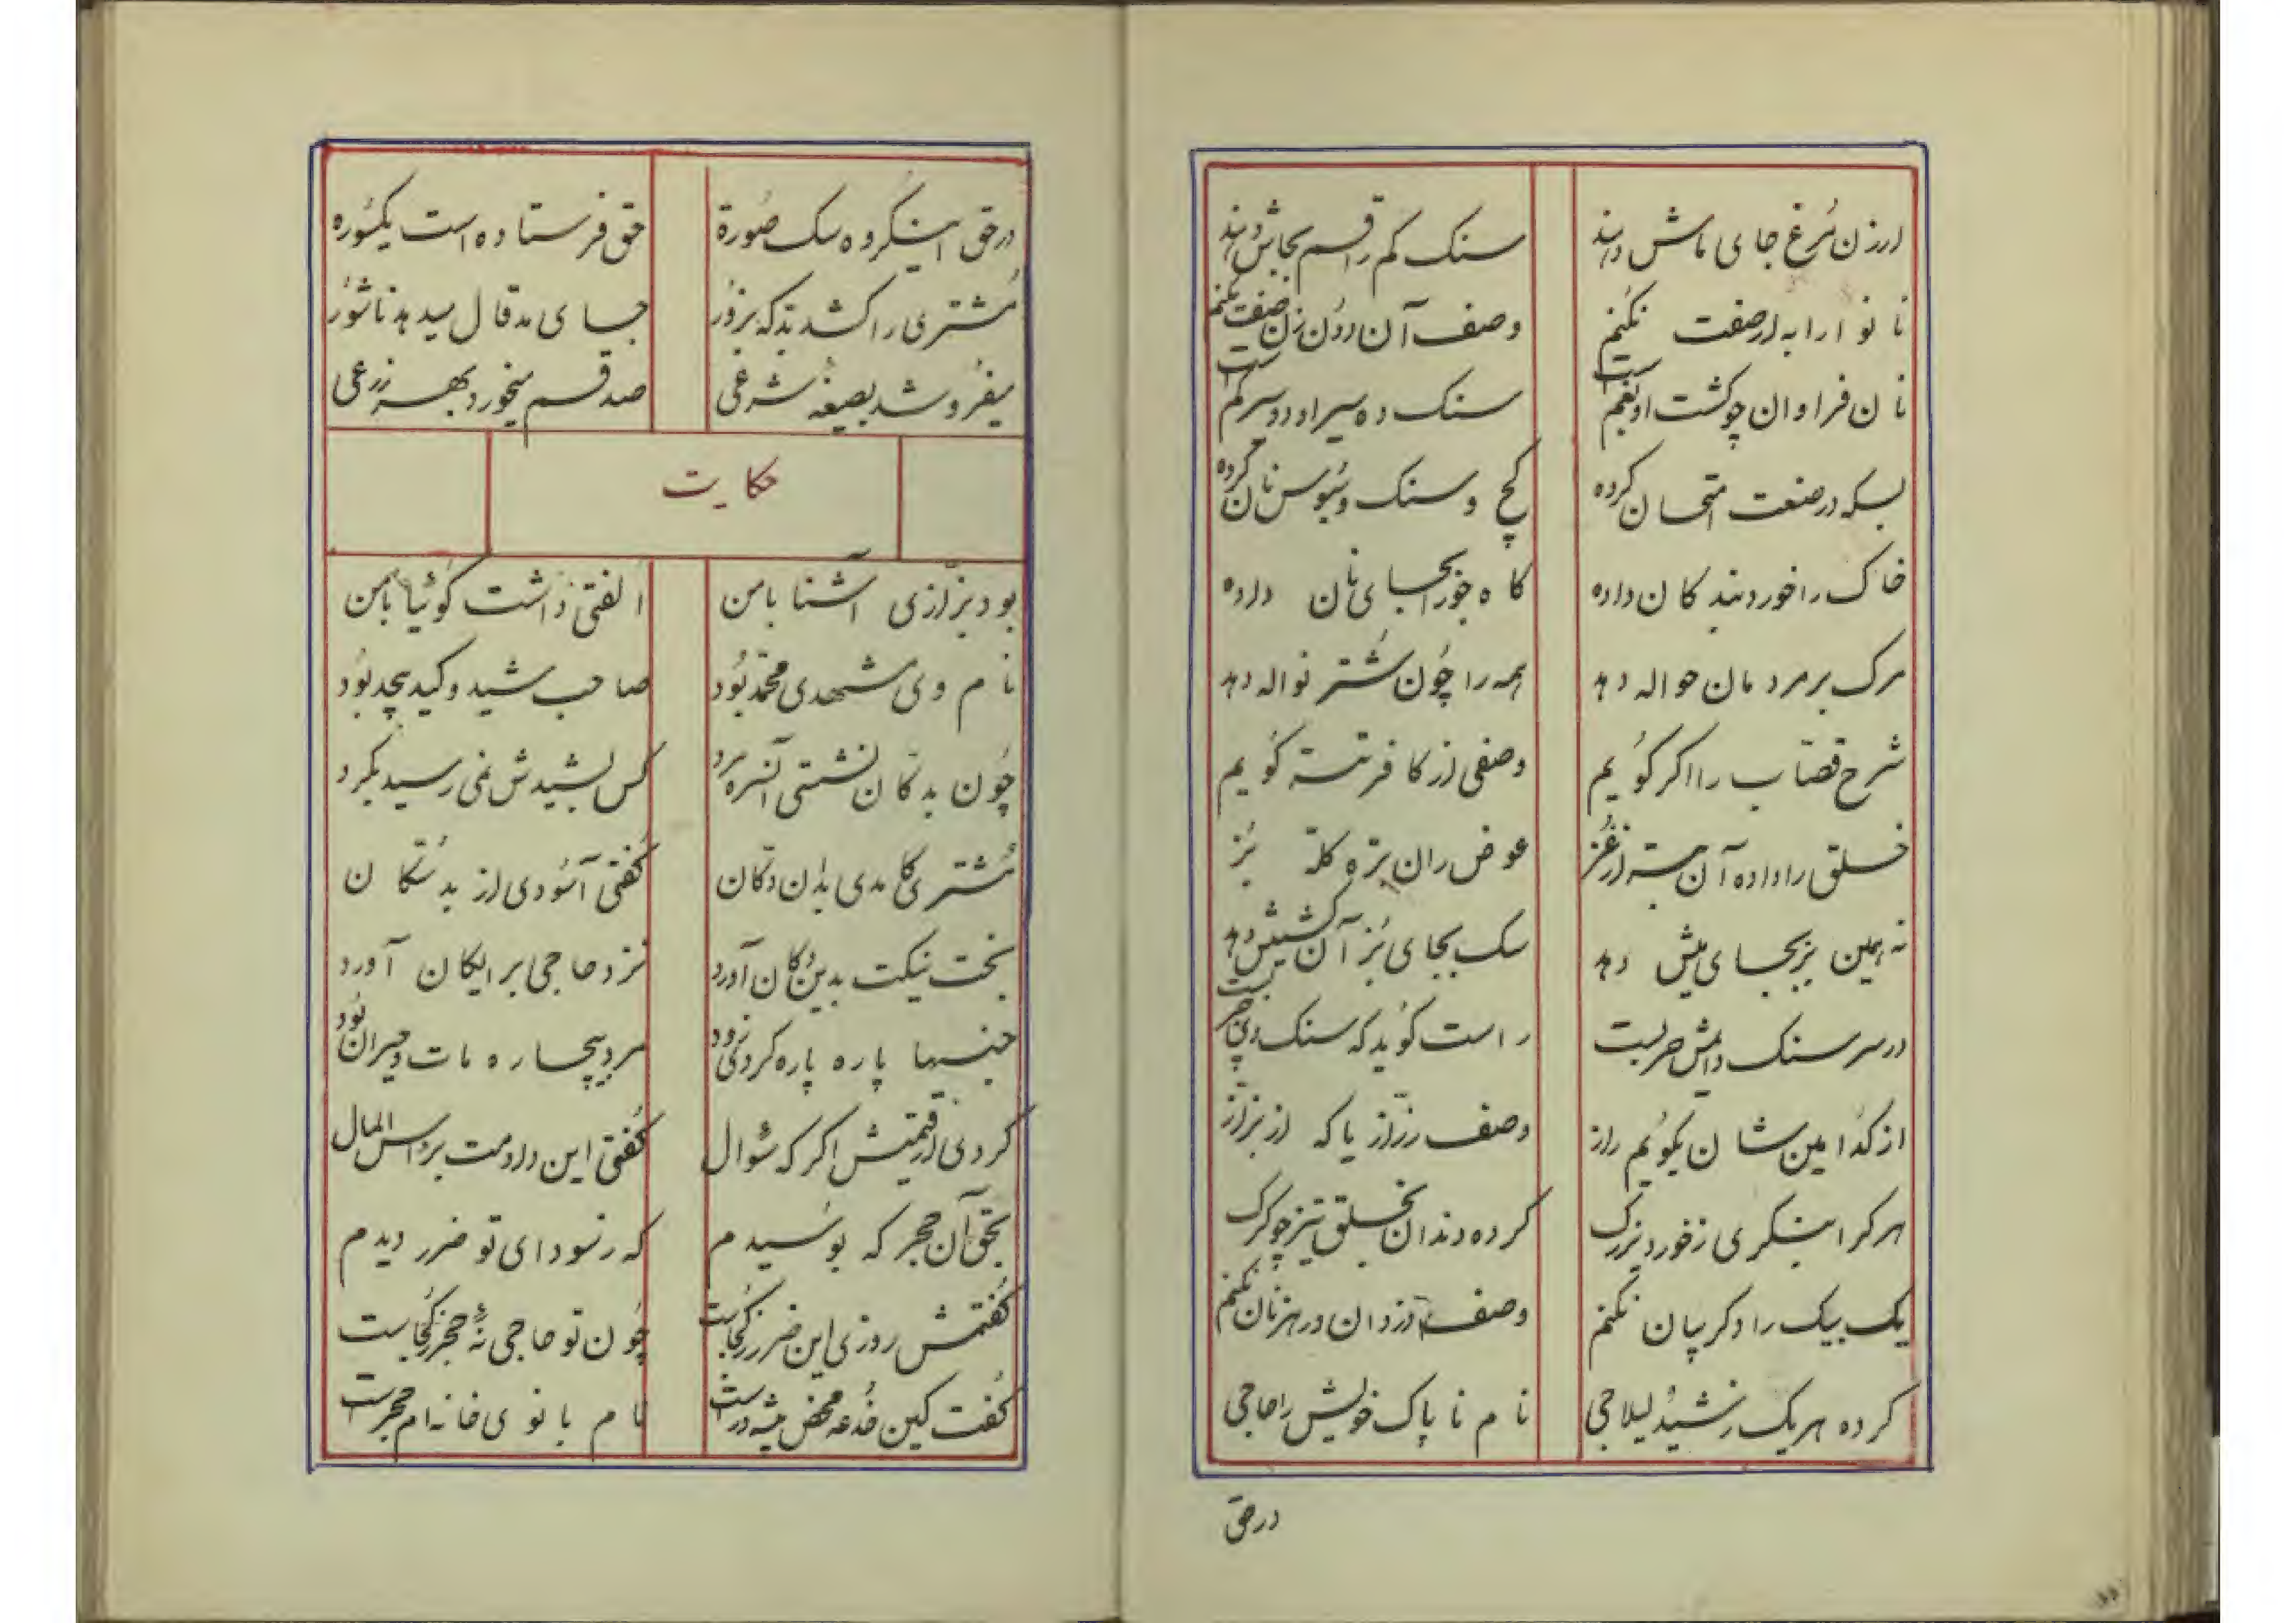 ارزن مرغ جای ماش دهند سنک کم را قسم بجاش دهند
نانوا را به از صفت نکنم وصف آن دون زن صفت نکنم
نان فراوان چو کشت او بغم است سنک ده سیر او دو سیر کم است
بسکه در صنعت امتحان کرده کچ و سنک و سبوس نان کرده
خاک را خورد بندکان داده کاه جو را بجای نان داده
مرک بر مردمان حواله دهد همه را چون شتر نواله دهد
شرح قصاب را اکر کویم وصفی از کافر تتر کویم
خلق را داده آن بتر از غز عوض ران بره کله بز
نه همین بز بجای میش دهد سک بجای بز آن کشیش دهد
در سر سنک دایمش حربست راست کوید که سنک وی چربست
از کدامین شان بکویم راز وصف رزاز یا که از بزاز
هر کرا بنکری ز خورد و بزرک کرده دندان بخلق تیز چو کرک
یک بیک را دکر بیان نکنم وصف دزدان و رهزنان نکنم
کرده هر یک ز شید لیلاجی نام ناپاک خویش را حاجی
در حق
در حق اینکروه سک صورة حق فرستاده است یکسوره
مشتری را کشد بدکه بزور جای مدقال میدهد ناشور
میفروشد بصیغه شرعی صد قسم میخورد بهر زرعی
حکایت
بود بزازی آشنا با من الفتی داشت کوئیا با من
نام وی مشهدی محمد بود صاحب شید و کید بیحد بود
چون بدکان نشستی آنسره مرد کس بشیدش نمی رسید بکرد
مشتری کامدی بدان دکان کفتی آسودی از بدستکان
بخت نیکت بدین دکان آورد نزد حاجی برایکان آورد
جنسها پاره پاره کردی زود مرد بیچاره مات و حیران بود
کردی از قیمتش اکر که سوال کفتی این دادمت برأس المال
بحق آن حجر که بوسیدم که ز سودای تو ضرر دیدم
کفتمش روزی این ضرر ز کجاست چون تو حاجی نۀ حجر ز کجاست
کفت کین خدعه محض پیشه‌ور است نام بانوی خانه‌ام حجر است